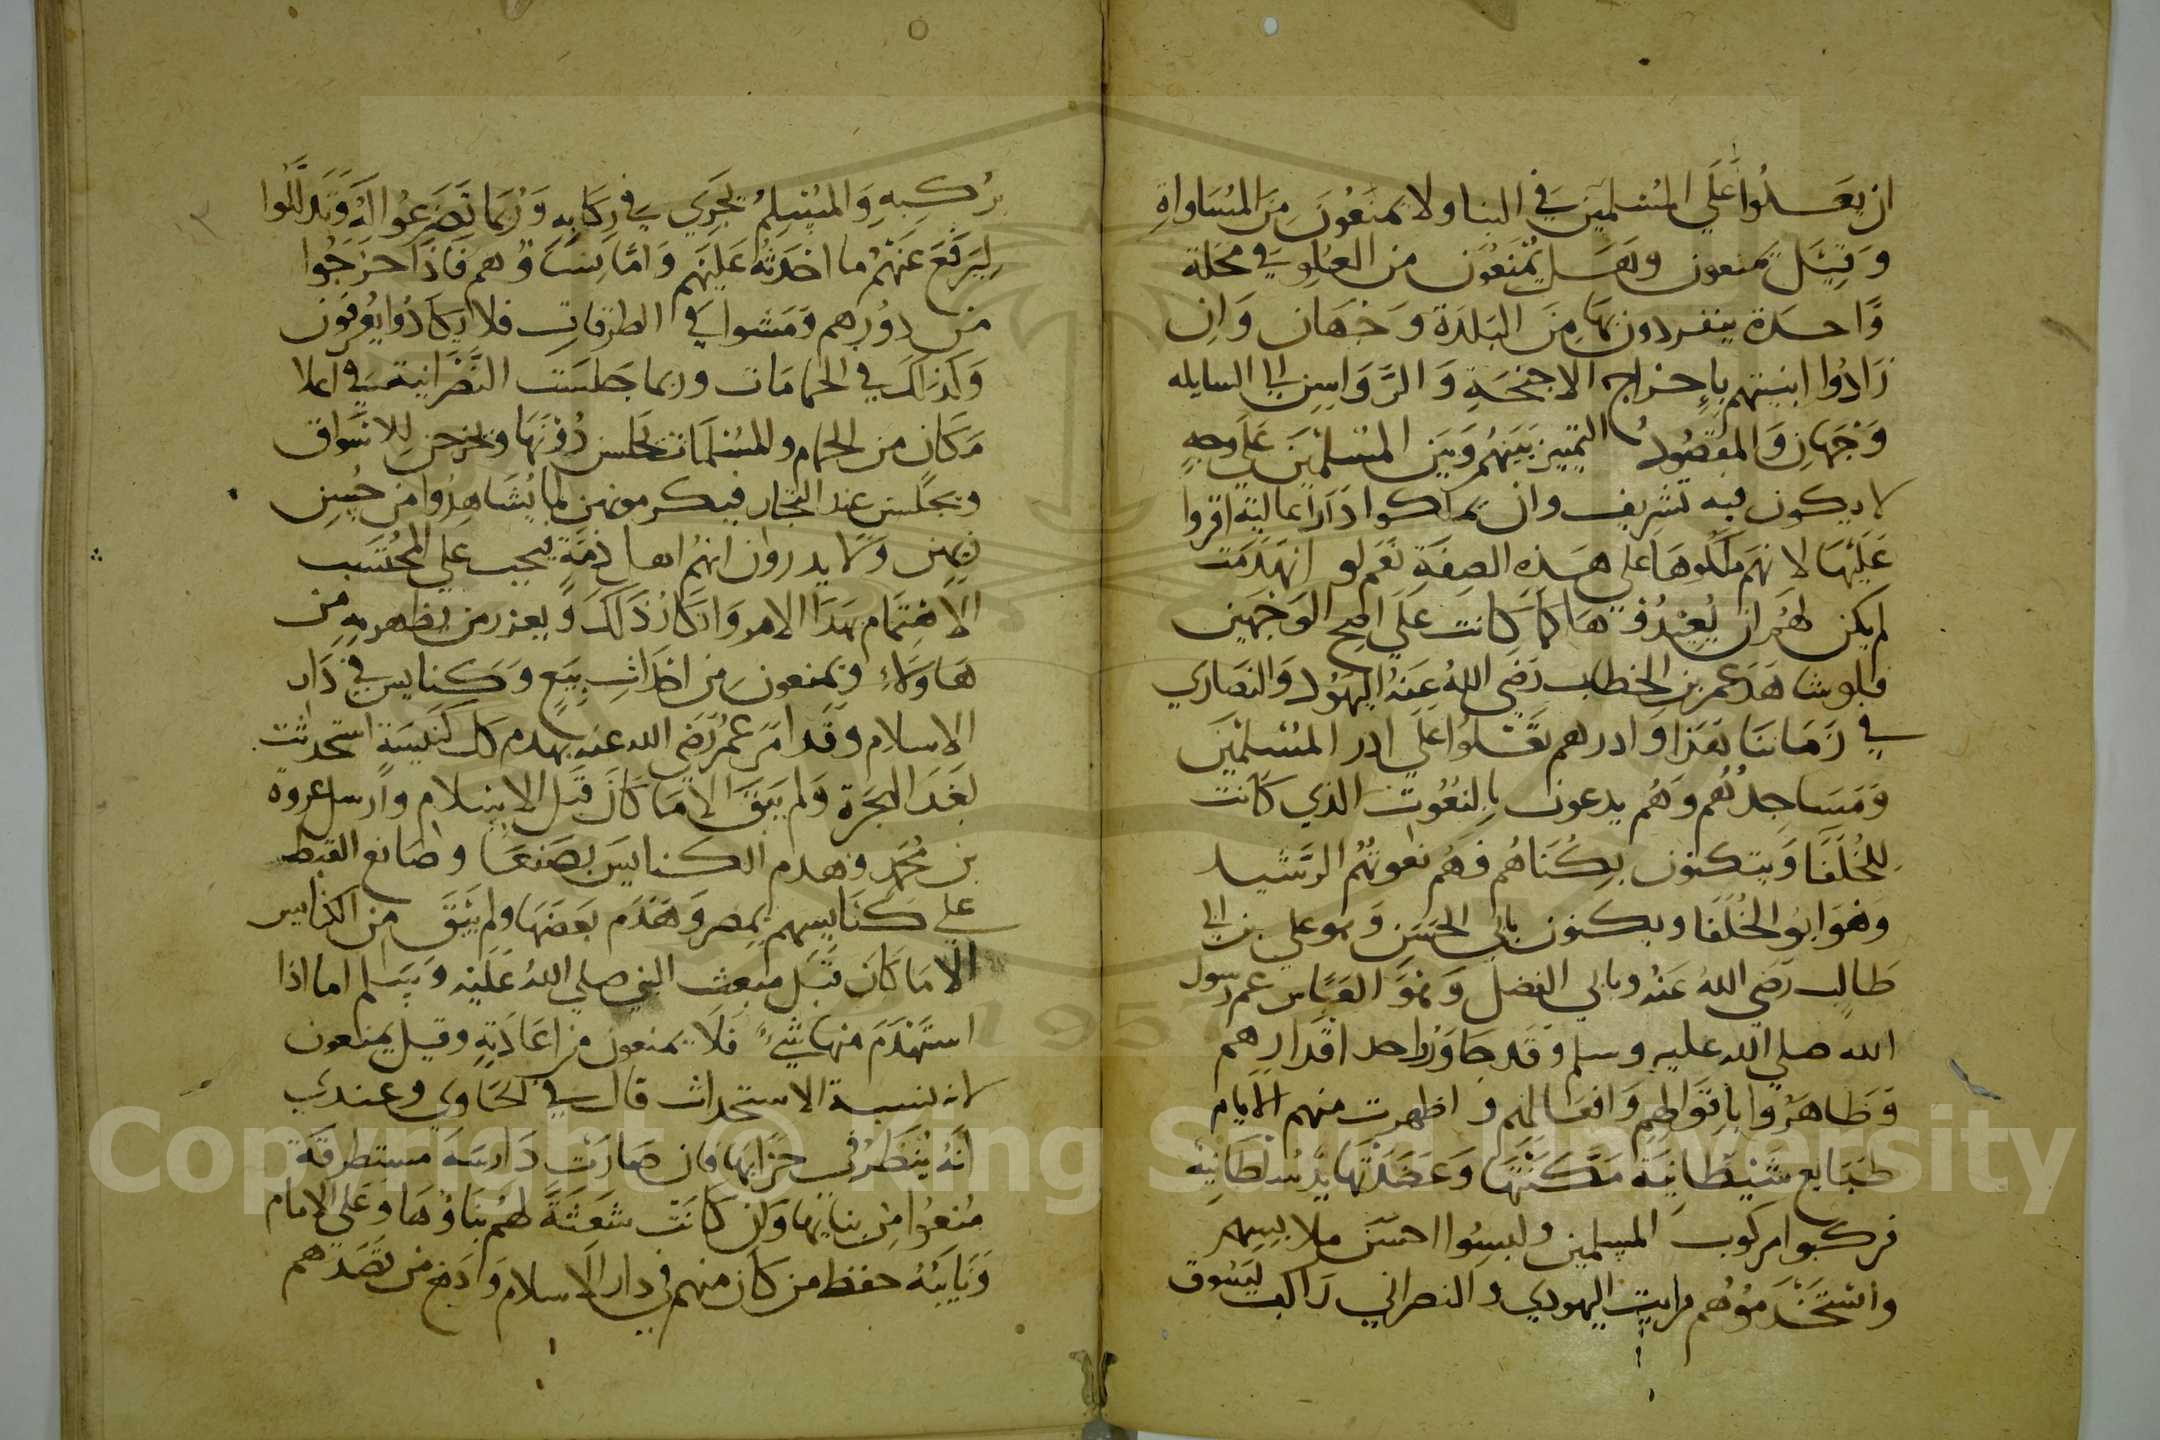 ان يعلوا علي المسلمين في البنا ولا يمنعون من المساواة
وقيل يمنعون وهل يمنعون من العلو في محلة
واحدة ينفردون بها من البلدة وجهان وان
زادوا ابنيتهم باخراج الاجنحة والرواسين الي السابله
وجهان والمقصود التمييز بينهم وبين المسلمين علي وجه
لا يكون فيه تشريف وان تملكوا دارا عالية اقروا
عليها لانهم ملكوها علي هذه الصفة نعم لو انهدمت
لم يكن لهم ان يعيدوها كما كانت علي اصح الوجهين
فلو شاهد عمر بن الخطاب رضي الله عنه اليهود والنصاري
في زماننا هذا وادرهم تعلوا علي ادر المسلمين
ومساجدهم وهم يدعون بالنعوت الذي كانت
للخلفا ويتكنون بكناهم فهم نعوتهم الرشيد
وهو ابو الخلفا ويكنون بابي الحسن وهو علي بن ابي
طالب رضي الله عنه وبابي الفضل وهو العباس عم رسول
الله صلي الله عليه وسلم وقد جاوزوا حد اقدارهم
وظاهروا باقوالهم وافعالهم واظهرت منهم الايام
طبايع شيطانية مكنتها وعضدتها يد سلطانية
فركبوا مركوب المسلمين ولبسوا احسن ملابسهم
واستخدموهم فرايت اليهودي والنصراني راكب يسوق
مركبه والمسلم يجري في ركابه وربما تضرعوا له وتذللوا
ليرفع عنهم ما احدثه عليهم واما نساؤهم فاذا خرجوا
من دورهم ومشوا في الطرقات فلا يكادوا يعرفون
وكذلك في الحمامات وربما جلست النصرانية في اعلا
مكان من الحمام والمسلمات تجلس دونها ويخرجن للاسواق
ويجلسن عند التجار فيكرمونهن لما يشاهدوا من حسن
زيهن ولا يدروان انهم اهل ذمة فيجب علي المحتسب
الاهتمام بهذا الامر وانكار ذلك ويعزر من يظهر به من
هاولاء ويمنعون من احداث بيع وكنايس في دار
الاسلام وقد امر عمر رضي الله عنه بهدم كل كنيسة استحدثت
بعد الهجرة ولم يبق الا ما كان قبل الاسلام وارسل عروة
بن محمد وهدم الكنايس بصنعا وصانع القبط
علي كنايسهم بمصر وهدم بعضها ولم يبق من الكنايس
الا ما كان قبل مبعث النبي صلي الله عليه وسلم اما اذا
استهدم منها شيء فلا يمنعون من اعادته وقيل يمنعون
لانه نسبة الاستحداث قال في الحاوي وعندي
انه ينظر في خرابها فان صارت دارسة مستطرقة
منعوا من بنايها وان كانت شعثة لهم بناؤها وعلي الامام
ونايبه حفظ من كان منهم في دار الاسلام وادفع من قصدهم
Copyright © King Saud University
1957